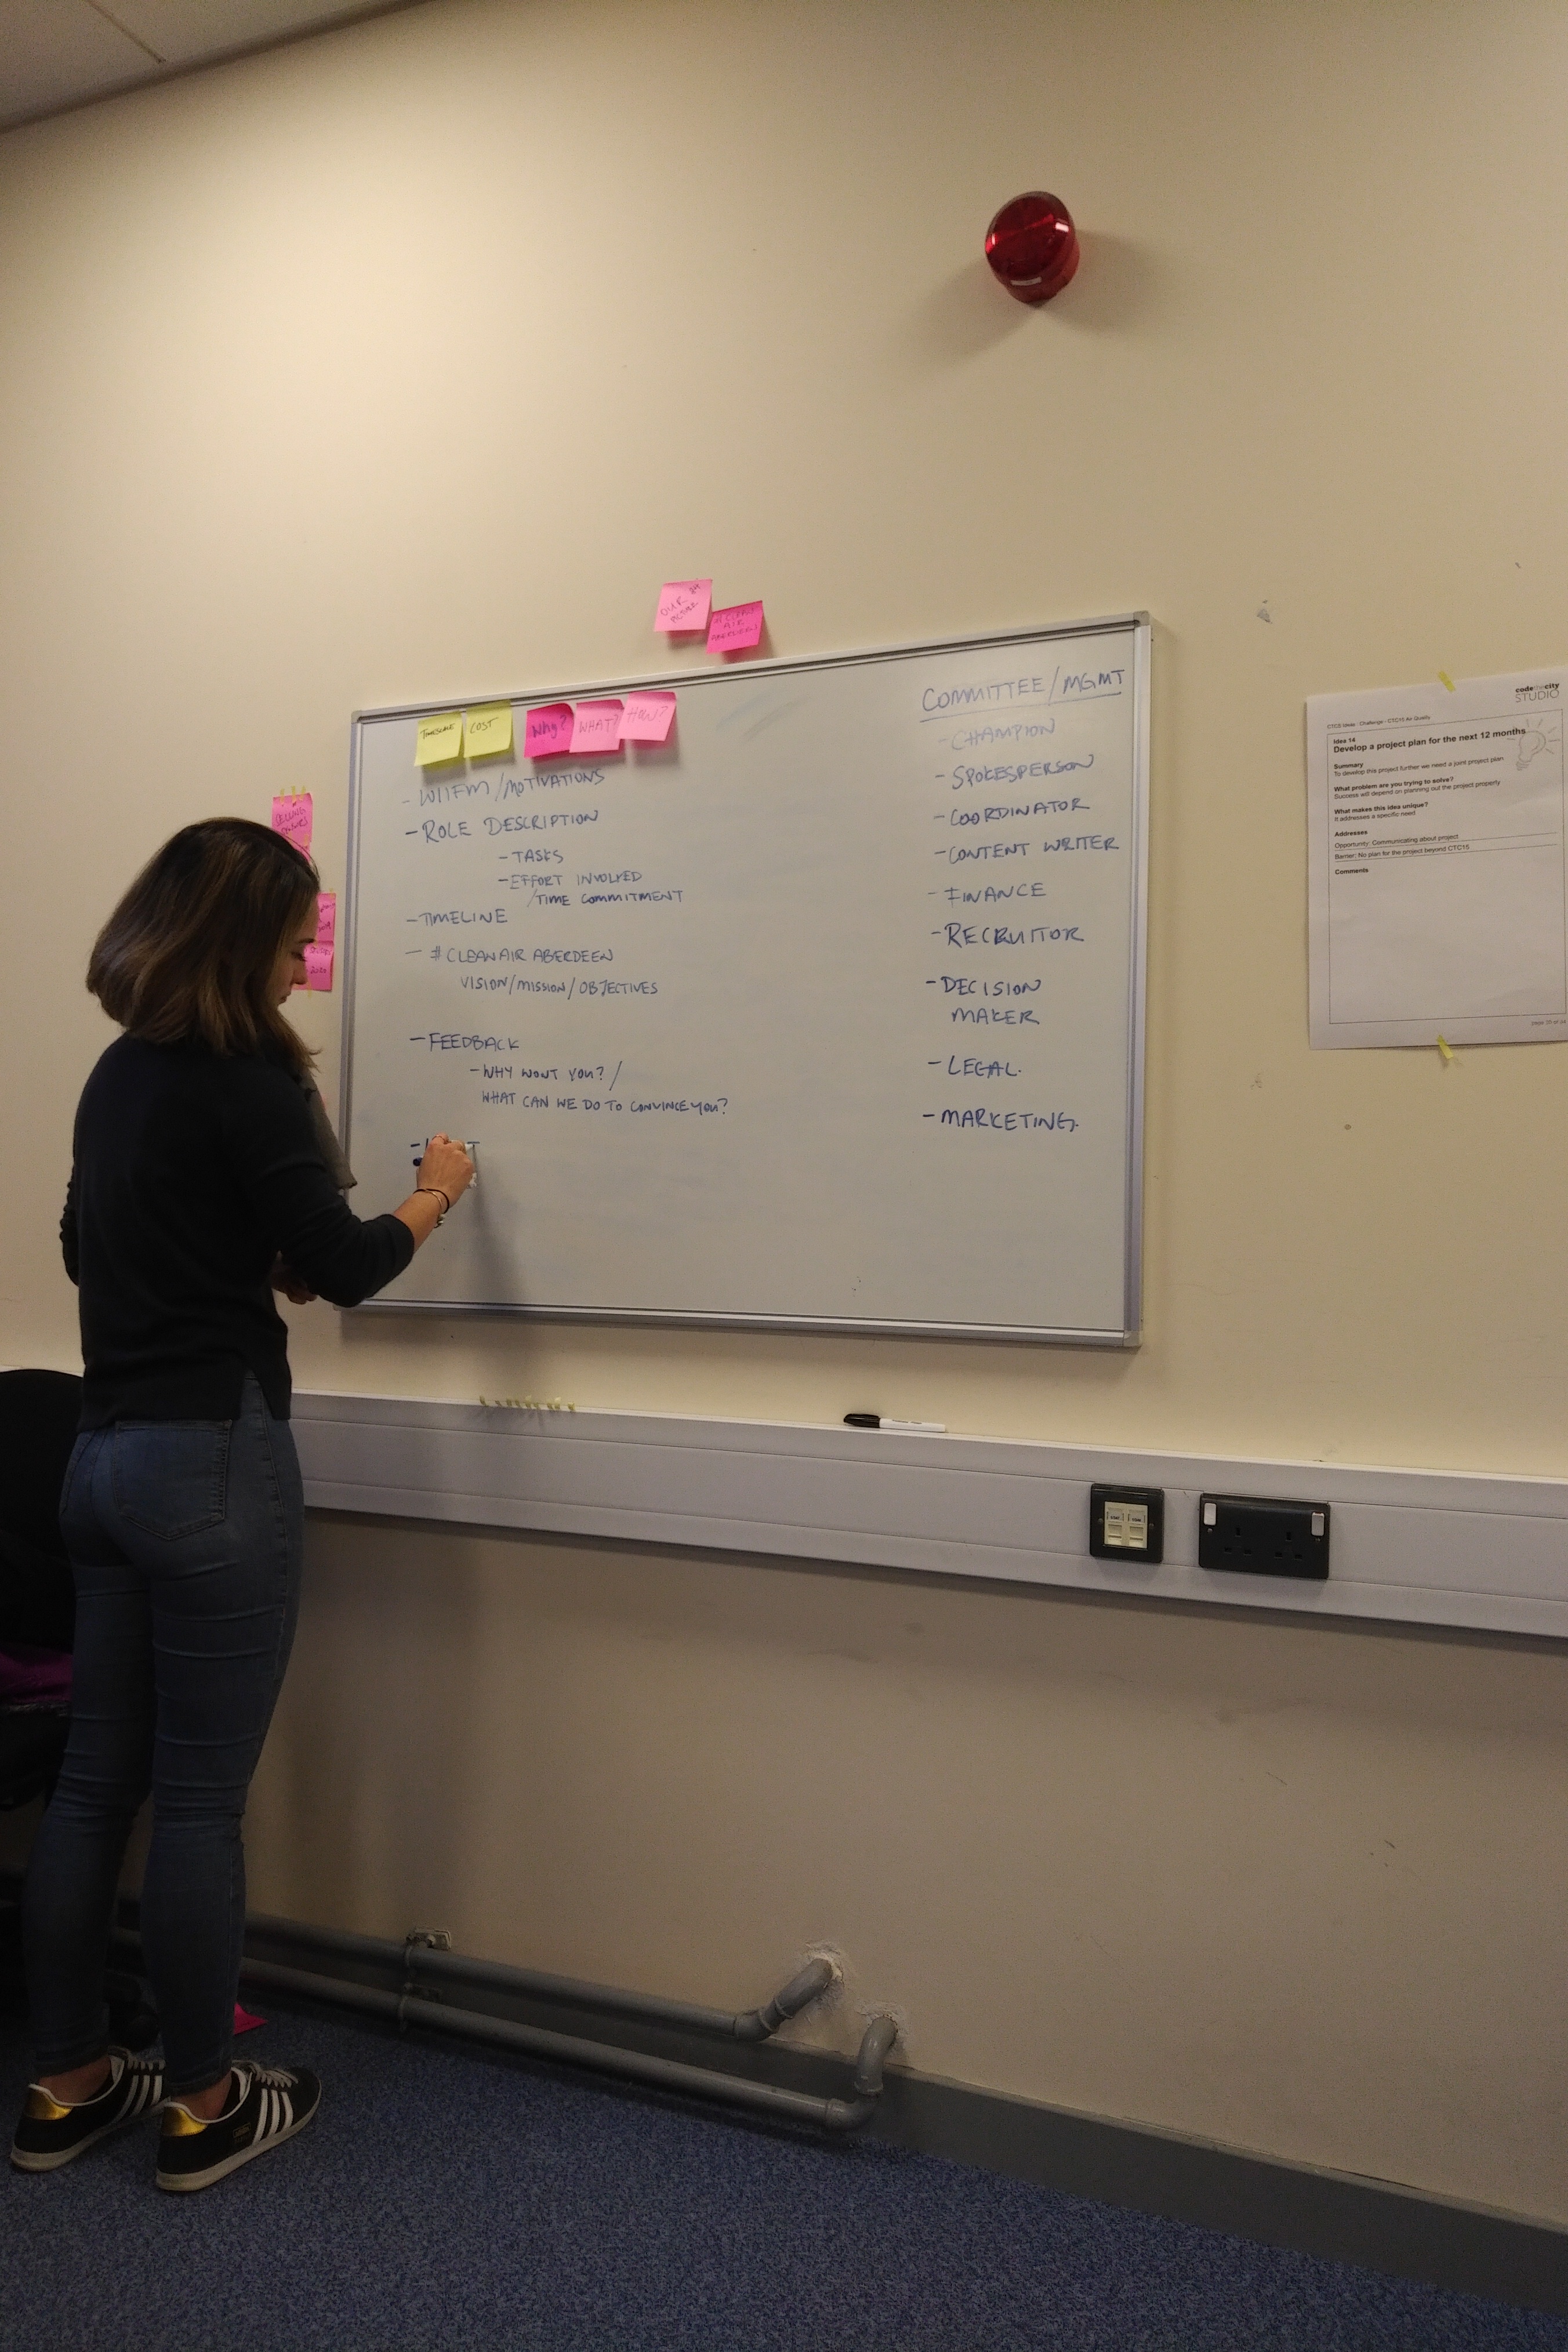 OUR
AIR
ABERDEEN
TIMESCALE
COST
Why?
WHAT?
HOW?
- WIIFM/MOTIVATIONS
- ROLE DESCRIPTION
- TASKS
- EFFORT INVOLVED
/TIME COMMITMENT
- TIMELINE
- #CLEANAIR ABERDEEN
VISION/MISSION/OBJECTIVES
- FEEDBACK
- WHY WONT YOU? /
WHAT CAN WE DO TO CONVINCE YOU?
COMMITTEE/MGMT
- CHAMPION
- SPOKESPERSON
- COORDINATOR
- CONTENT WRITER
- FINANCE
- RECRUITOR
- DECISION
MAKER
- LEGAL.
- MARKETING.
codethecity
STUDIO
CTC15 Air Quality
Idea 14
Develop a project plan for the next 12 months
Summary
To develop this project further we need a joint project plan
What problem are you trying to solve?
Success will depend on planning out the project properly
What makes this idea unique?
It addresses a specific need
Addresses
Opportunity: Communicating about project
Barrier: No plan for the project beyond CTC15
Comments